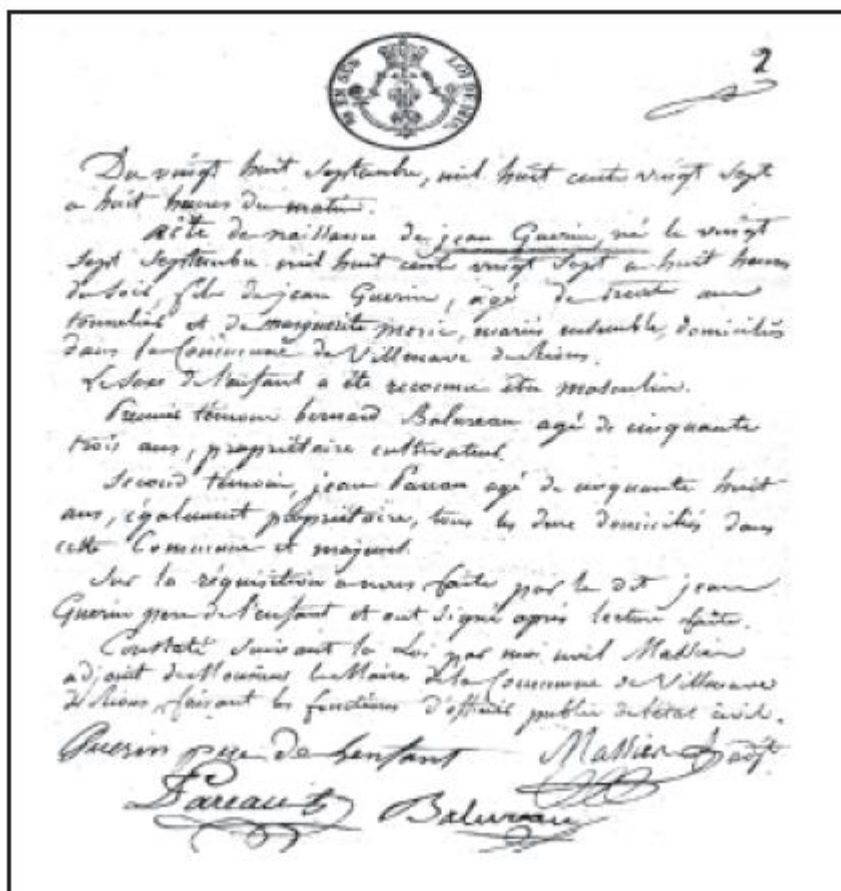 2
Du vingt huit Septembre, mil huit cent vingt sept
a huit heures du matin.
Acte de naissance de jean Guerin, né le vingt
sept Septembre mil huit cent vingt sept a huit heures
du Soir, fils de jean Guerin, agé de trente ans
tonnelier et de marguerite moric, mariés ensemble, domiciliés
dans la Commune de Villenave de Rions.
Le Sexe de l'enfant a été reconnu être masculin.
Premier témoin bernard Balureau agé de cinquante
trois ans, propriétaire cultivateur.
Second témoin, jean agé de cinquante huit
ans, également propriétaire, tous les deux domiciliés dans
cette Commune et majeurs.
Sur la réquisition a nous faite par le dit jean
Guerin pere de l'enfant et ont signé après lecture faite.
Constaté suivant la Loi par moi Massieu
adjoint de Monsieur le Maire de la Commune de Villenave
de Rions, faisant les fonctions d'officier public de l'état civil.
Guerin pere de lenfant Massieu adjt
Pareau Balureau